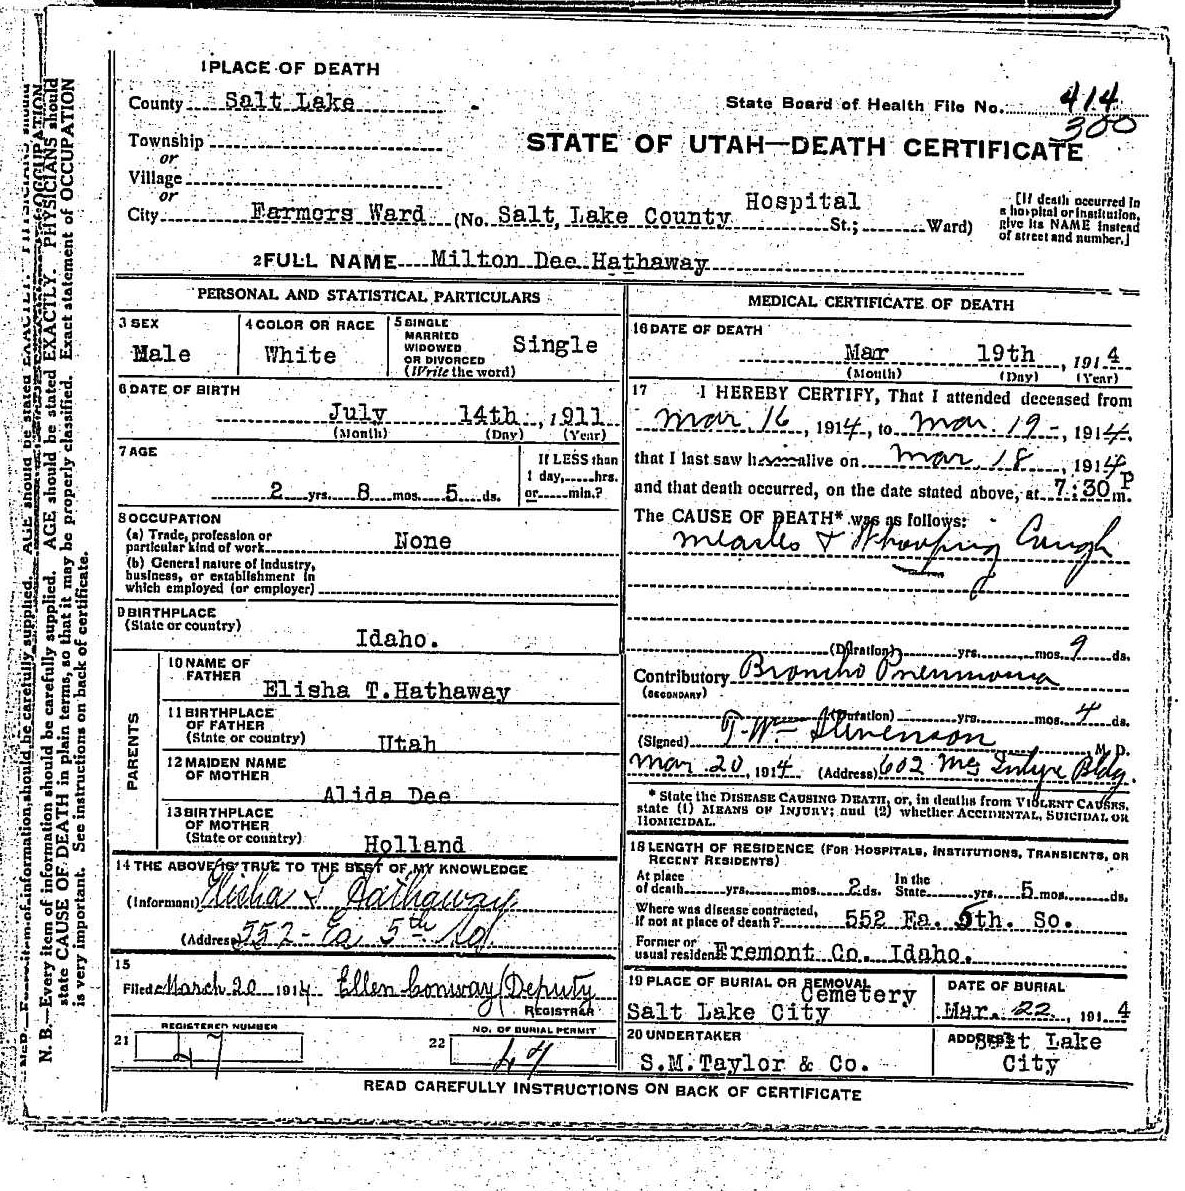 1 PLACE OF DEATH
County Salt Lake
State Board of Health File No. 414
300
Township
or
STATE OF UTAH—DEATH CERTIFICATE
Village
or
City Farmers Ward (No. Salt Lake County Hospital St.; Ward)
[If death occurred in
a hospital or institution,
give its NAME instead
of street and number.]
2 FULL NAME Milton Dee Hathaway
PERSONAL AND STATISTICAL PARTICULARS
3 SEX
Male
4 COLOR OR RACE
White
5 SINGLE
MARRIED
WIDOWED
OR DIVORCED
(Write the word)
Single
6 DATE OF BIRTH
July 14th, 1911
(Month) (Day) (Year)
7 AGE
2 yrs. 8 mos. 5 ds.
If LESS than
1 day, hrs.
or min.?
8 OCCUPATION
(a) Trade, profession or
particular kind of work None
(b) General nature of industry,
business, or establishment in
which employed (or employer)
9 BIRTHPLACE
(State or country)
Idaho.
PARENTS
10 NAME OF
FATHER
Elisha T.Hathaway
11 BIRTHPLACE
OF FATHER
(State or country)
Utah
12 MAIDEN NAME
OF MOTHER
Alida Dee
13 BIRTHPLACE
OF MOTHER
(State or country)
Holland
14 THE ABOVE IS TRUE TO THE BEST OF MY KNOWLEDGE
(Informant) Elisha T Hathaway
(Address) 552 - Ea 5th So.
15
Filed March 20 1914 Ellen Conway (Deputy
REGISTRAR
REGISTERED NUMBER
21 47
NO. OF BURIAL PERMIT
22
MEDICAL CERTIFICATE OF DEATH
16 DATE OF DEATH
Mar 19th, 1914
(Month) (Day) (Year)
17 I HEREBY CERTIFY, That I attended deceased from
Mar 16, 1914, to Mar. 19-, 1914,
that I last saw him alive on Mar. 18, 1914
and that death occurred, on the date stated above, at 7:30 P m.
The CAUSE OF DEATH* was as follows:
Measles & Whooping Cough
(Duration) yrs. mos. 9 ds.
Contributory Broncho Pneumonia
(SECONDARY)
(Duration) yrs. mos. 4 ds.
(Signed) T. Wm Stevenson, M. D.
Mar 20, 1914 (Address) 602 McIntyre Bldg.
* State the DISEASE CAUSING DEATH, or, in deaths from VIOLENT CAUSES,
state (1) MEANS OF INJURY; and (2) whether ACCIDENTAL, SUICIDAL OR
HOMICIDAL.
18 LENGTH OF RESIDENCE (FOR HOSPITALS, INSTITUTIONS, TRANSIENTS, OR
RECENT RESIDENTS)
At place
of death yrs. mos. 2 ds.
In the
State yrs. 5 mos. ds.
Where was disease contracted,
if not at place of death? 552 Ea. 5th. So.
Former or
usual residence Fremont Co. Idaho.
19 PLACE OF BURIAL OR REMOVAL
Cemetery
Salt Lake City
DATE OF BURIAL
Mar. 22, 1914
20 UNDERTAKER
S.M.Taylor & Co.
ADDRESS
Salt Lake
City
READ CAREFULLY INSTRUCTIONS ON BACK OF CERTIFICATE
N. B.—Every item of information should be carefully supplied. AGE should be stated EXACTLY. PHYSICIANS should
state CAUSE OF DEATH in plain terms, so that it may be properly classified. Exact statement of OCCUPATION
is very important. See instructions on back of certificate.